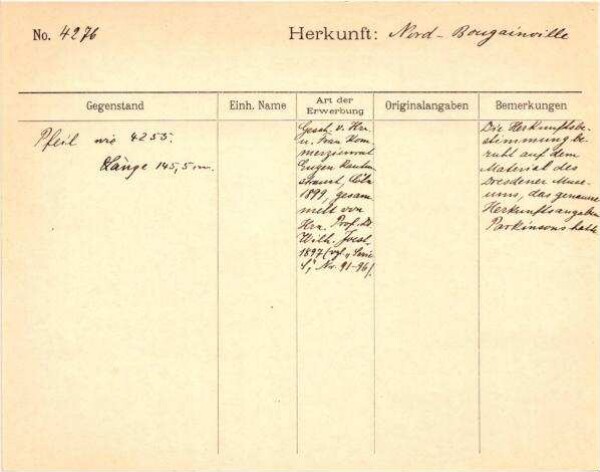 No. 4276
Herkunft: Nord-Bougainville
Gegenstand
Einh. Name
Art der Erwerbung
Originalangaben
Bemerkungen
Pfeil wie 4253.
Länge 145,5 cm.
Gesch. v. Hrn
u. Frau Kom
merzienrat
Eugen Rauten
strauch, Cöln
1899, gesam
melt von
Hrn. Prof. Dr.
Wilh. Joest,
1897 (vgl. "Serie
I", Nr. 91-96).
Die Herkunftsbe-
stimmung be-
ruht auf dem
Material des
Dresdener Muse-
ums, das genaue
Herkunftsangaben
Parkinsons hatte